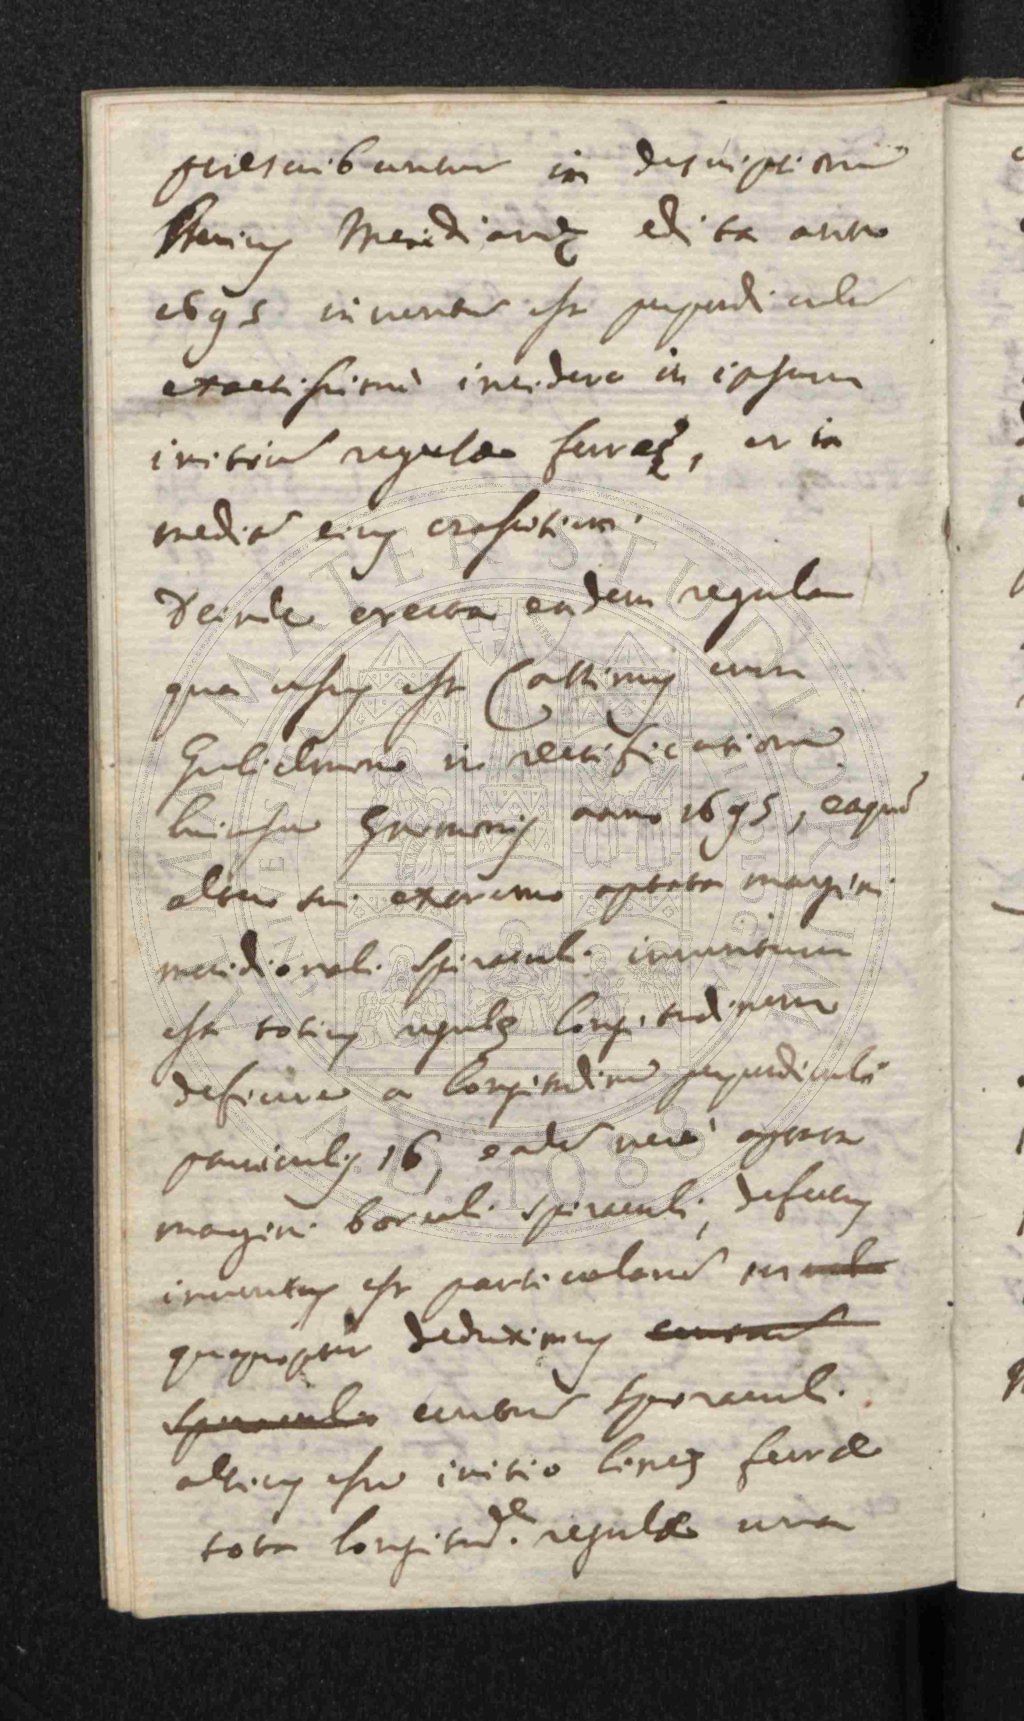 præscribuntur in descriptione
huius Meridianę edita anno
1695 inventū est perpendiculū
exactissimè incidere in ipsum
initiū regulæ ferreę, et in
mediā eius crassitiem.
Deinde erecta eadem regula
qua usus est Cassinus cum
Gulielmino in rectificatione
huiusce Gnomonis anno 1695, eaque
altero sui extremo aptata margini
meridionali spiraculi inventum
est totius regulę longitudinem
deficere a longitudine perpendiculi
particulis 16, eadē verò aptata
margini boreali spiraculi, defectus
inventus est particularū
quapropter deduximus centrū
spiraculi centrū spiraculi
altius esse initio lineę ferreæ
tota longitud.e regulæ una